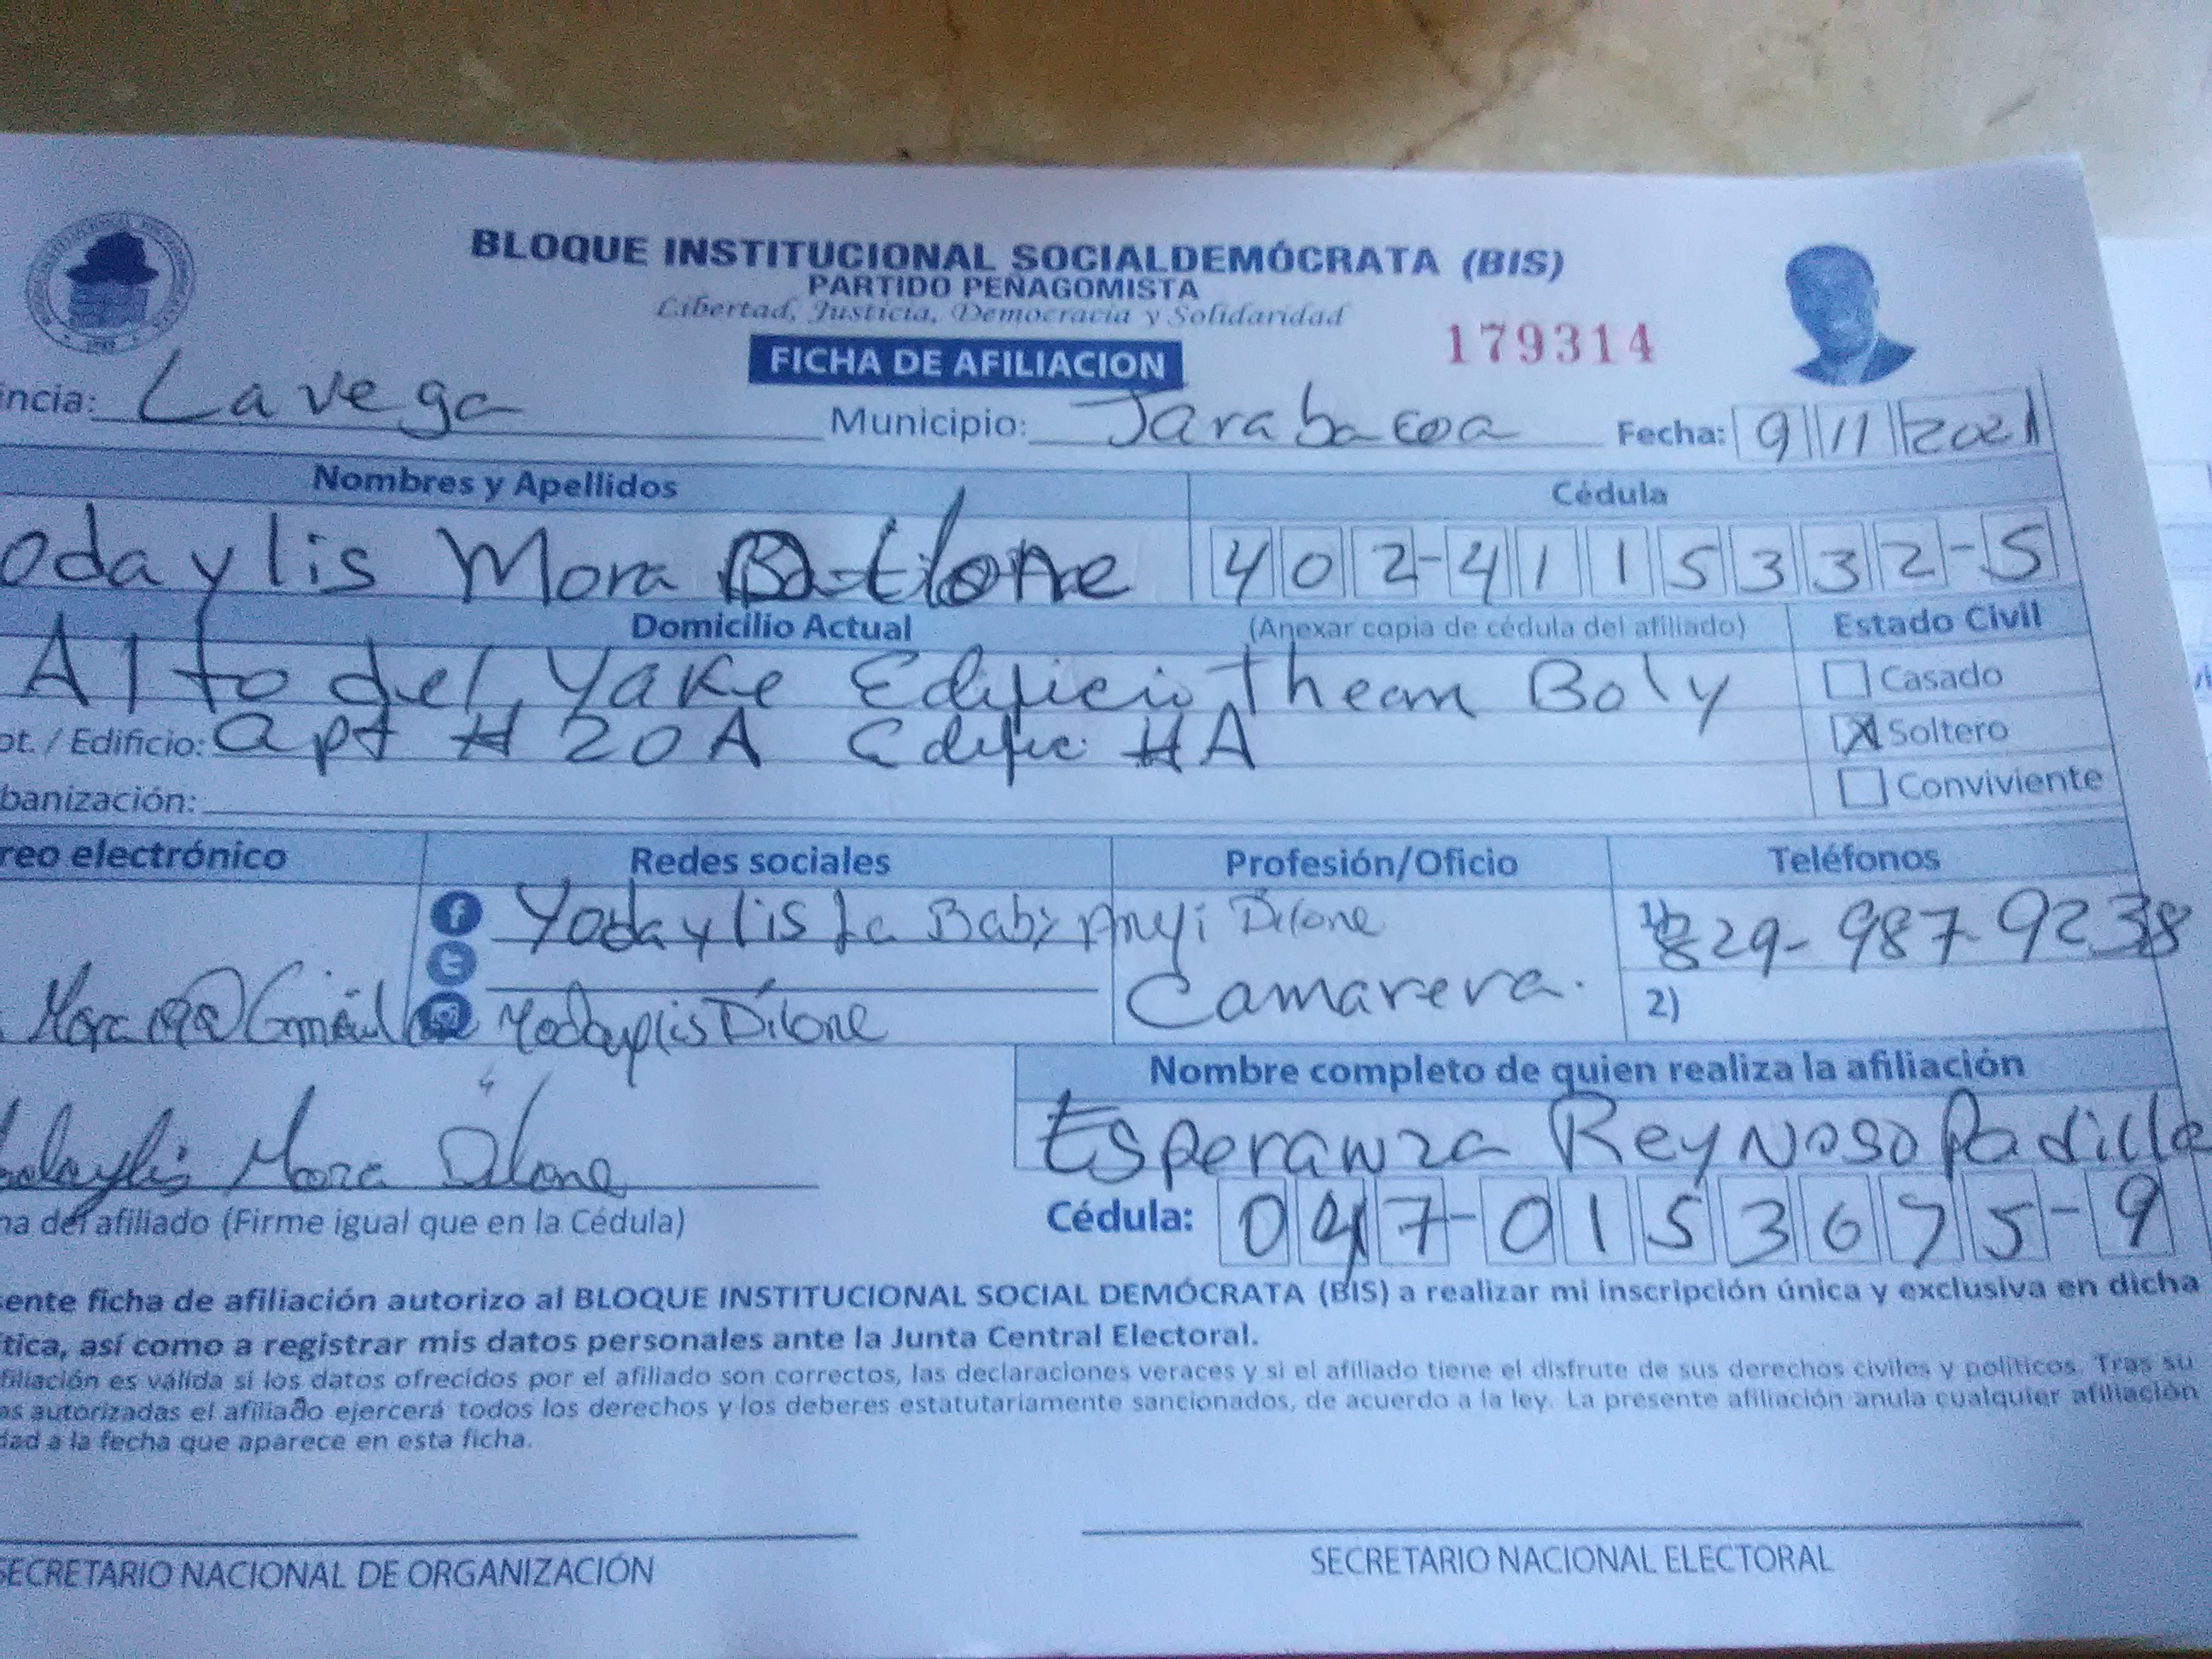 BLOQUE INSTITUCIONAL SOCIALDEMÓCRATA (BIS)
PARTIDO PEÑAGOMISTA
Libertad, Justicia, Democracia y Solidaridad
FICHA DE AFILIACION
179314
incia: La vega Municipio: Jarabacoa Fecha: 9 11 2021
Nombres y Apellidos Cédula
odaylis Mora 402-4115332-5
Domicilio Actual (Anexar copia de cédula del afiliado) Estado Civil
Alto del Yake Edificio Thean Boly Casado
pt. / Edificio: apt # 20A Edific #A X Soltero
banización: Conviviente
reo electrónico Redes sociales Profesión/Oficio Teléfonos
Yodaylis La Baby Anyi Dilone 1) 829-987-9238
Camarera.
Yodaylis Dilone 2)
Nombre completo de quien realiza la afiliación
Esperanza Reynoso Padilla
Mora Dilone
na del afiliado (Firme igual que en la Cédula) Cédula: 047-0153675-9
sente ficha de afiliación autorizo al BLOQUE INSTITUCIONAL SOCIAL DEMÓCRATA (BIS) a realizar mi inscripción única y exclusiva en dicha
tica, así como a registrar mis datos personales ante la Junta Central Electoral.
filiación es válida si los datos ofrecidos por el afiliado son correctos, las declaraciones veraces y si el afiliado tiene el disfrute de sus derechos civiles y políticos. Tras su
as autorizadas el afiliado ejercerá todos los derechos y los deberes estatutariamente sancionados, de acuerdo a la ley. La presente afiliación anula cualquier afiliación
dad a la fecha que aparece en esta ficha.
SECRETARIO NACIONAL DE ORGANIZACIÓN SECRETARIO NACIONAL ELECTORAL